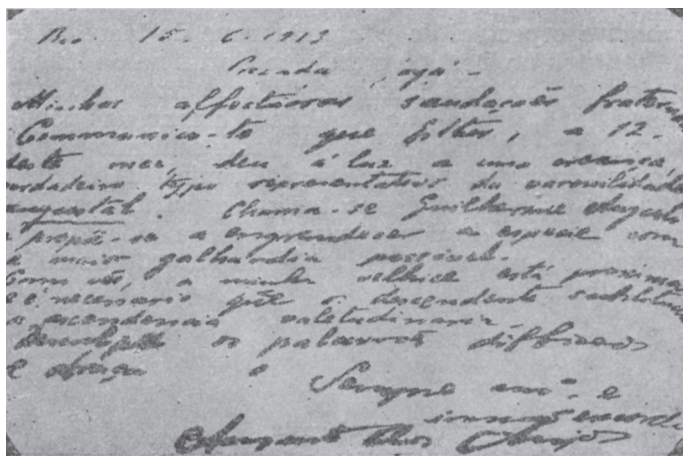 Rio 15-6-1913
Prezada Iaiá-
Minhas affectuosas saudações fraternaes
Communico-te que Esther, a 12-
deste mez, deu á luz a uma creança,
verdadeiro typo representativo da varonilidade
ancestral. Chama-se Guilherme Augusto
e propõe-se a engrandecer a especie com
a maior galhardia possivel.
Como vês, a minha velhice está proxima
e é necessario que o descendente substitua
a ascendencia valetudinaria.
Desculpa as palavras difficeis
e abraça o
Sempre am.º e
irmão
Augusto dos Anjos